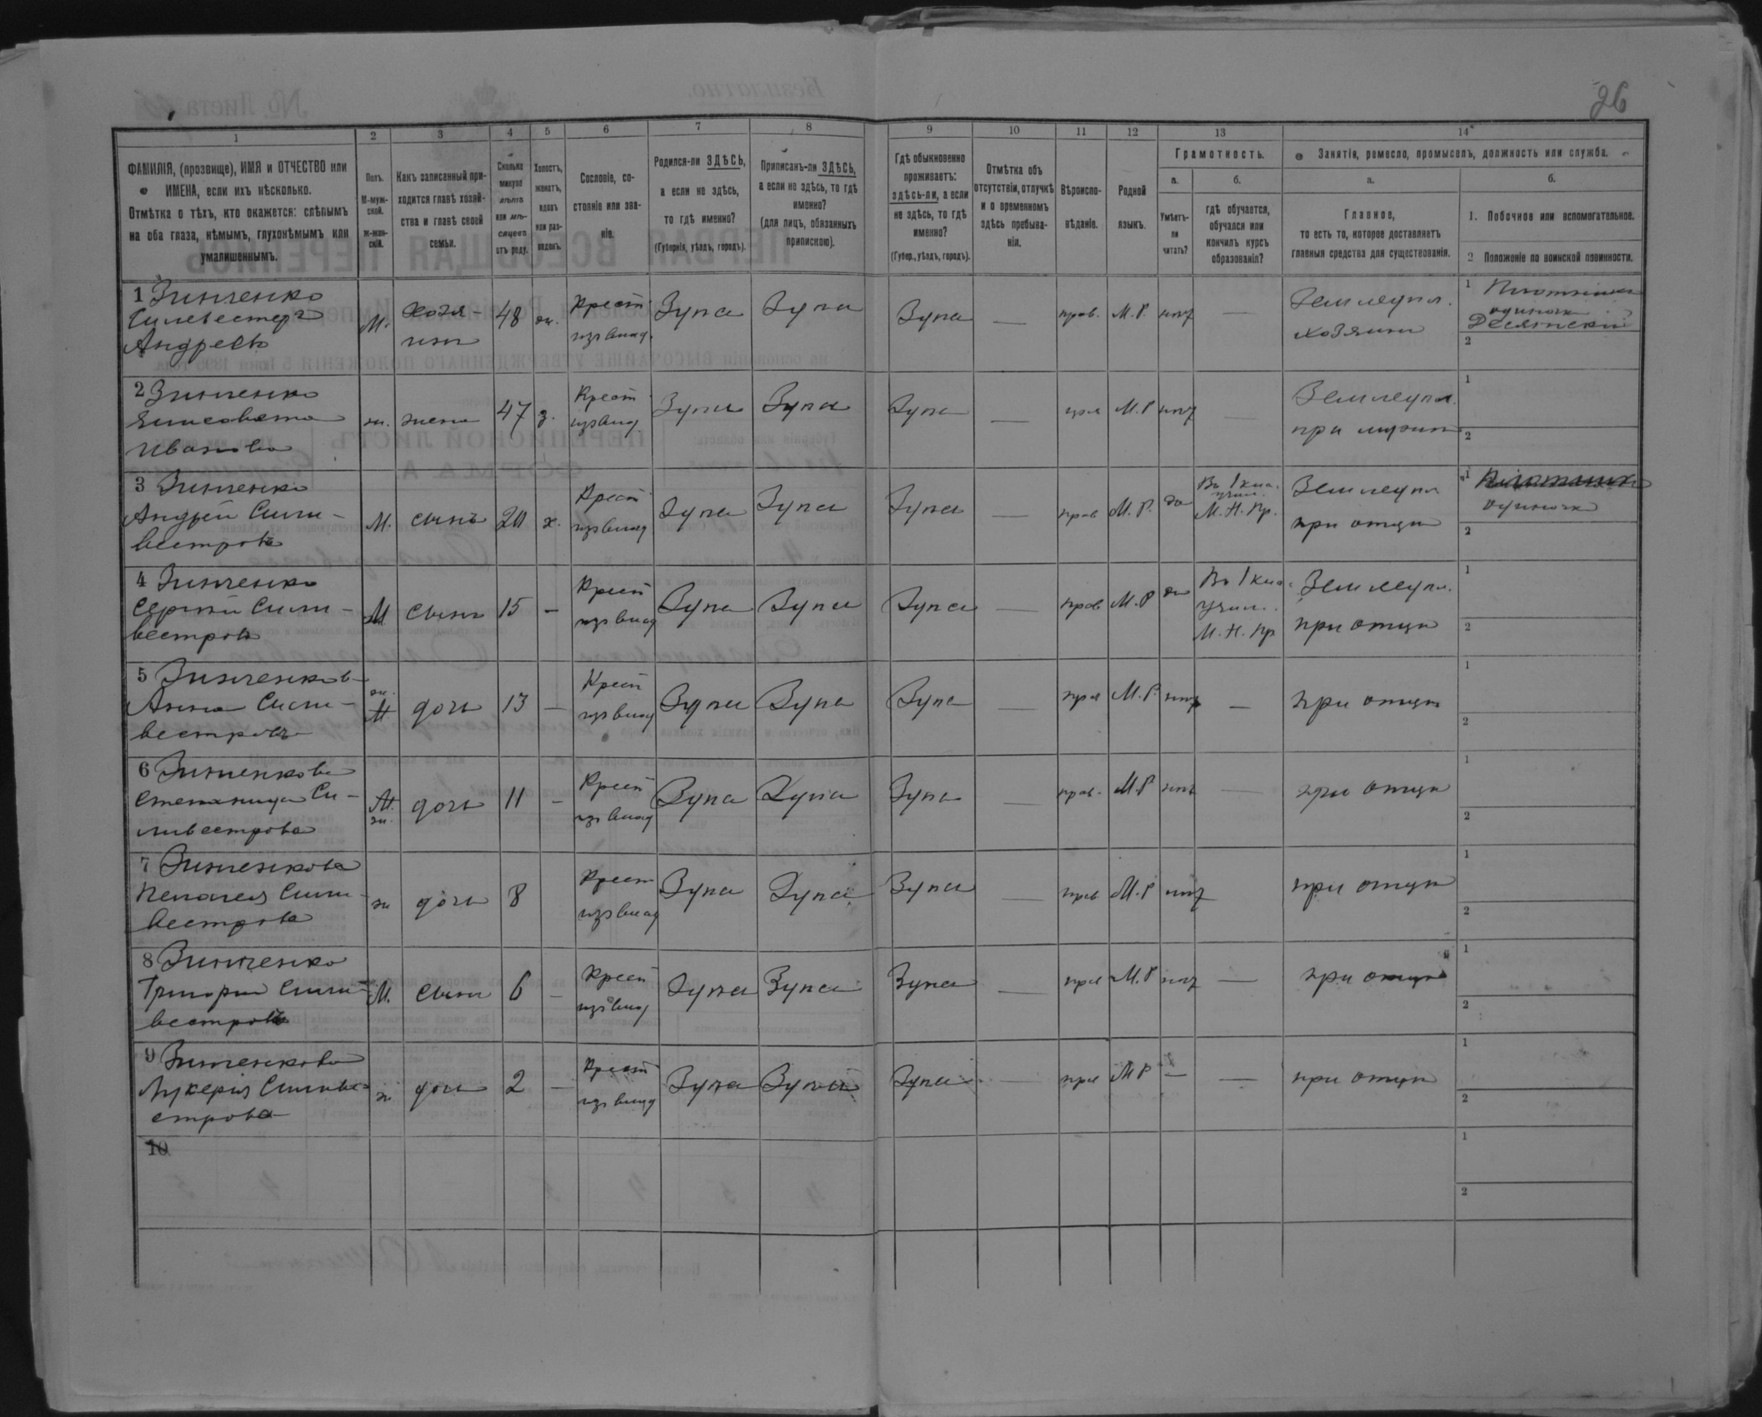 26
1 2 3 4 5 6 7 8 9 10 11 12 13 14
ФАМИЛІЯ, (прозвище), ИМЯ и ОТЧЕСТВО или
ИМЕНА, если ихъ нѣсколько.
Отмѣтка о тѣхъ, кто окажется: слѣпымъ
на оба глаза, нѣмымъ, глухонѣмымъ или
умалишеннымъ.
Полъ.
М-муж-
ской.
ж-жен-
скій.
Какъ записанный при-
ходится главѣ хозяй-
ства и главѣ своей
семьи.
Сколько
минуло
лѣтъ
или мѣ-
сяцевъ
отъ роду.
Холостъ,
женатъ,
вдовъ
или раз-
веденъ.
Сословіе, со-
стояніе или зва-
ніе.
Родился-ли ЗДѢСЬ,
а если не здѣсь,
то гдѣ именно?
(Губернія, уѣздъ, городъ).
Приписанъ-ли ЗДѢСЬ,
а если не здѣсь, то гдѣ
именно?
(для лицъ, обязанныхъ
припискою).
Гдѣ обыкновенно
проживаетъ:
здѣсь-ли, а если
не здѣсь, то гдѣ
именно?
(Губер., уѣздъ, городъ).
Отмѣтка объ
отсутствіи, отлучкѣ
и о временномъ
здѣсь пребыва-
ніи.
Вѣроиспо-
вѣданіе.
Родной
языкъ.
Грамотность.
а.
Умѣетъ-
ли
читать?
б.
гдѣ обучается,
обучался или
кончилъ курсъ
образованія?
Занятія, ремесло, промыселъ, должность или служба.
а.
Главное,
то есть то, которое доставляетъ
главныя средства для существованія.
б.
1. Побочное или вспомогательное.
2 Положеніе по воинской повинности.
1 Зинченко
Сильвестеръ
Андреевъ
М. хозя-
инъ 48 ж. Крест
изъ влад. Зупа Зупа Зупа — прав. М.Р. нѣт — Землеупл.
хозяинъ
1 Плотникъ
одиночк
2
2 Зинченко
Елисавета
Иванова
ж. жена 47 з. Крест
изъ влад Зупа Зупа Зупа — М.Р нѣт Землеупл.
при мужѣ
1
2
3 Зинченко
Андрей Сили-
вестровъ
М. сынъ 20 х. Крест
изъ влад Зупа Зупа Зупа — прав М.Р. да Въ 1 клас.
учил.
М.Н.Пр. Землеупл
при отцѣ
1 Плотникъ
одиночк
2
4 Зинченко
Сергѣй Сили-
вестровъ
М сынъ 15 — Крест
изъ влад Зупа Зупа Зупа — прав М.Р да Въ 1 клас.
учил.
М.Н.Пр Землеупл.
при отцѣ
1
2
5 Зинченкова
Анна Сили-
вестрова
ж. М дочь 13 — Крест
изъ влад Зупа Зупа Зупа — прав М.Р. нѣт — при отцѣ
1
2
6 Зинченкова
Степанида Си-
ливестрова
М. ж. дочь 11 — Крест
изъ влад Зупа Зупа Зупа — прав. М.Р нѣт — при отцѣ
1
2
7 Зинченкова
Пелагея Сили-
вестрова
ж дочь 8 Крест
изъ влад Зупа Зупа Зупа — прав М.Р нѣт при отцѣ
1
2
8 Зинченко
Григорій Сили-
вестровъ
М. сынъ 6 — Крест
изъ влад Зупа Зупа Зупа — прав М.Р нѣт — при отцѣ
1
2
9 Зинченкова
Лукерія Силиве
строва
ж дочь 2 — Крест
изъ влад Зупа Зупа Зупа — прав М.Р — — при отцѣ
1
2
10
1
2